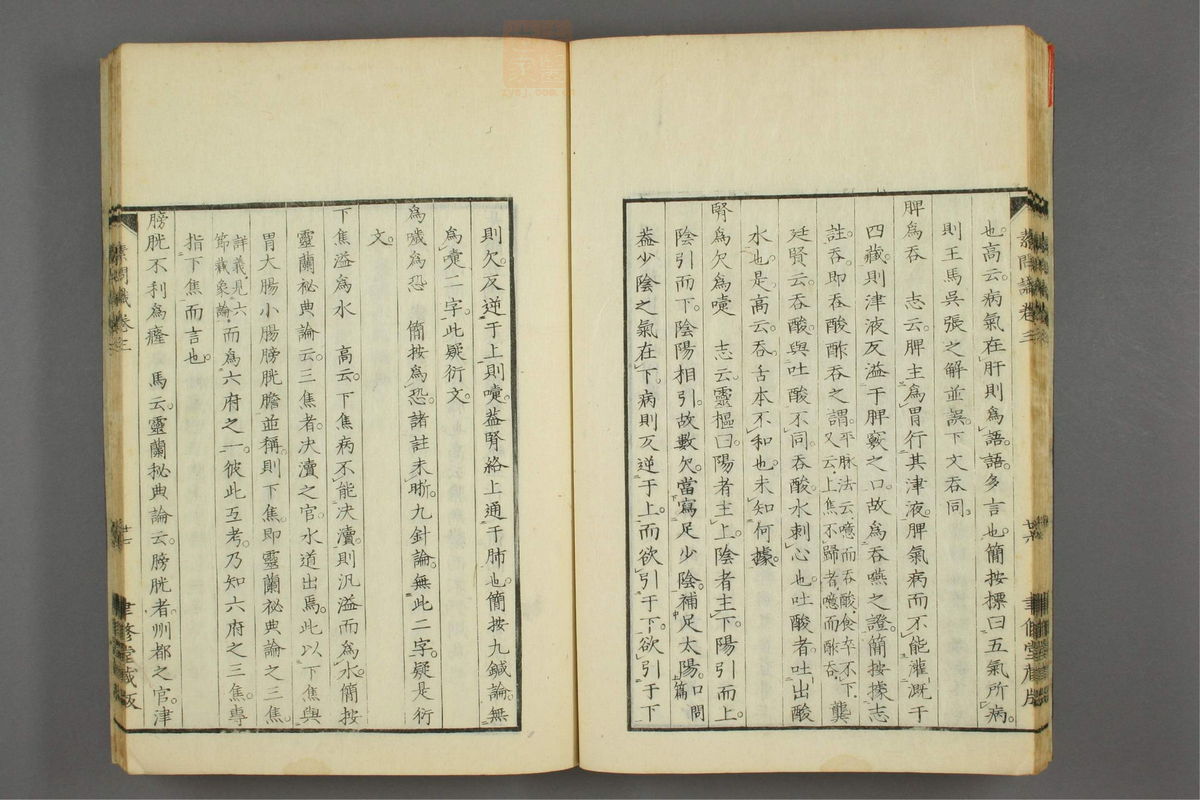 也高云病氣在肝則爲語語多言也簡按標曰五氣所病
則王馬吳張之解並誤下文吞同
脾爲吞　志云脾主爲胃行其津液脾氣病而不能灌漑于
四藏則津液反溢于脾竅之口故爲吞嚥之證簡按據志
註吞卽吞酸酢吞之謂平脉法云噫而吞酸食卒不下龔
又云上焦不歸者噫而酢吞
廷賢云吞酸與吐酸不同吞酸水刺心也吐酸者吐出酸
水也是高云吞舌本不和也未知何據
腎爲欠爲嚏　志云靈樞曰陽者主上陰者主下陽引而上
陰引而下陰陽相引故數欠當寫足少陰補足太陽口問篇
葢少陰之氣在下病則反逆于上而欲引于下欲引于下
則欠反逆于上則嚏葢腎絡上通于肺也簡按九鍼論無
爲嚏二字此疑衍文
爲噦爲恐　簡按爲恐諸註未晰九針論無此二字疑是衍
文
下焦溢爲水　高云下焦病不能決瀆則汎溢而爲水簡按
靈蘭秘典論云三焦者決瀆之官水道出焉此以下焦與
胃大腸小腸膀胱膽並稱則下焦卽靈蘭祕典論之三焦
詳義見六節藏象論而爲六府之一彼此互考乃知六府之三焦專
指下焦而言也
膀胱不利爲癃　馬云靈蘭祕典論云膀胱者州都之官津
素問識卷三
廿六
聿修堂藏版
素問識卷三
廿七
聿修堂藏版